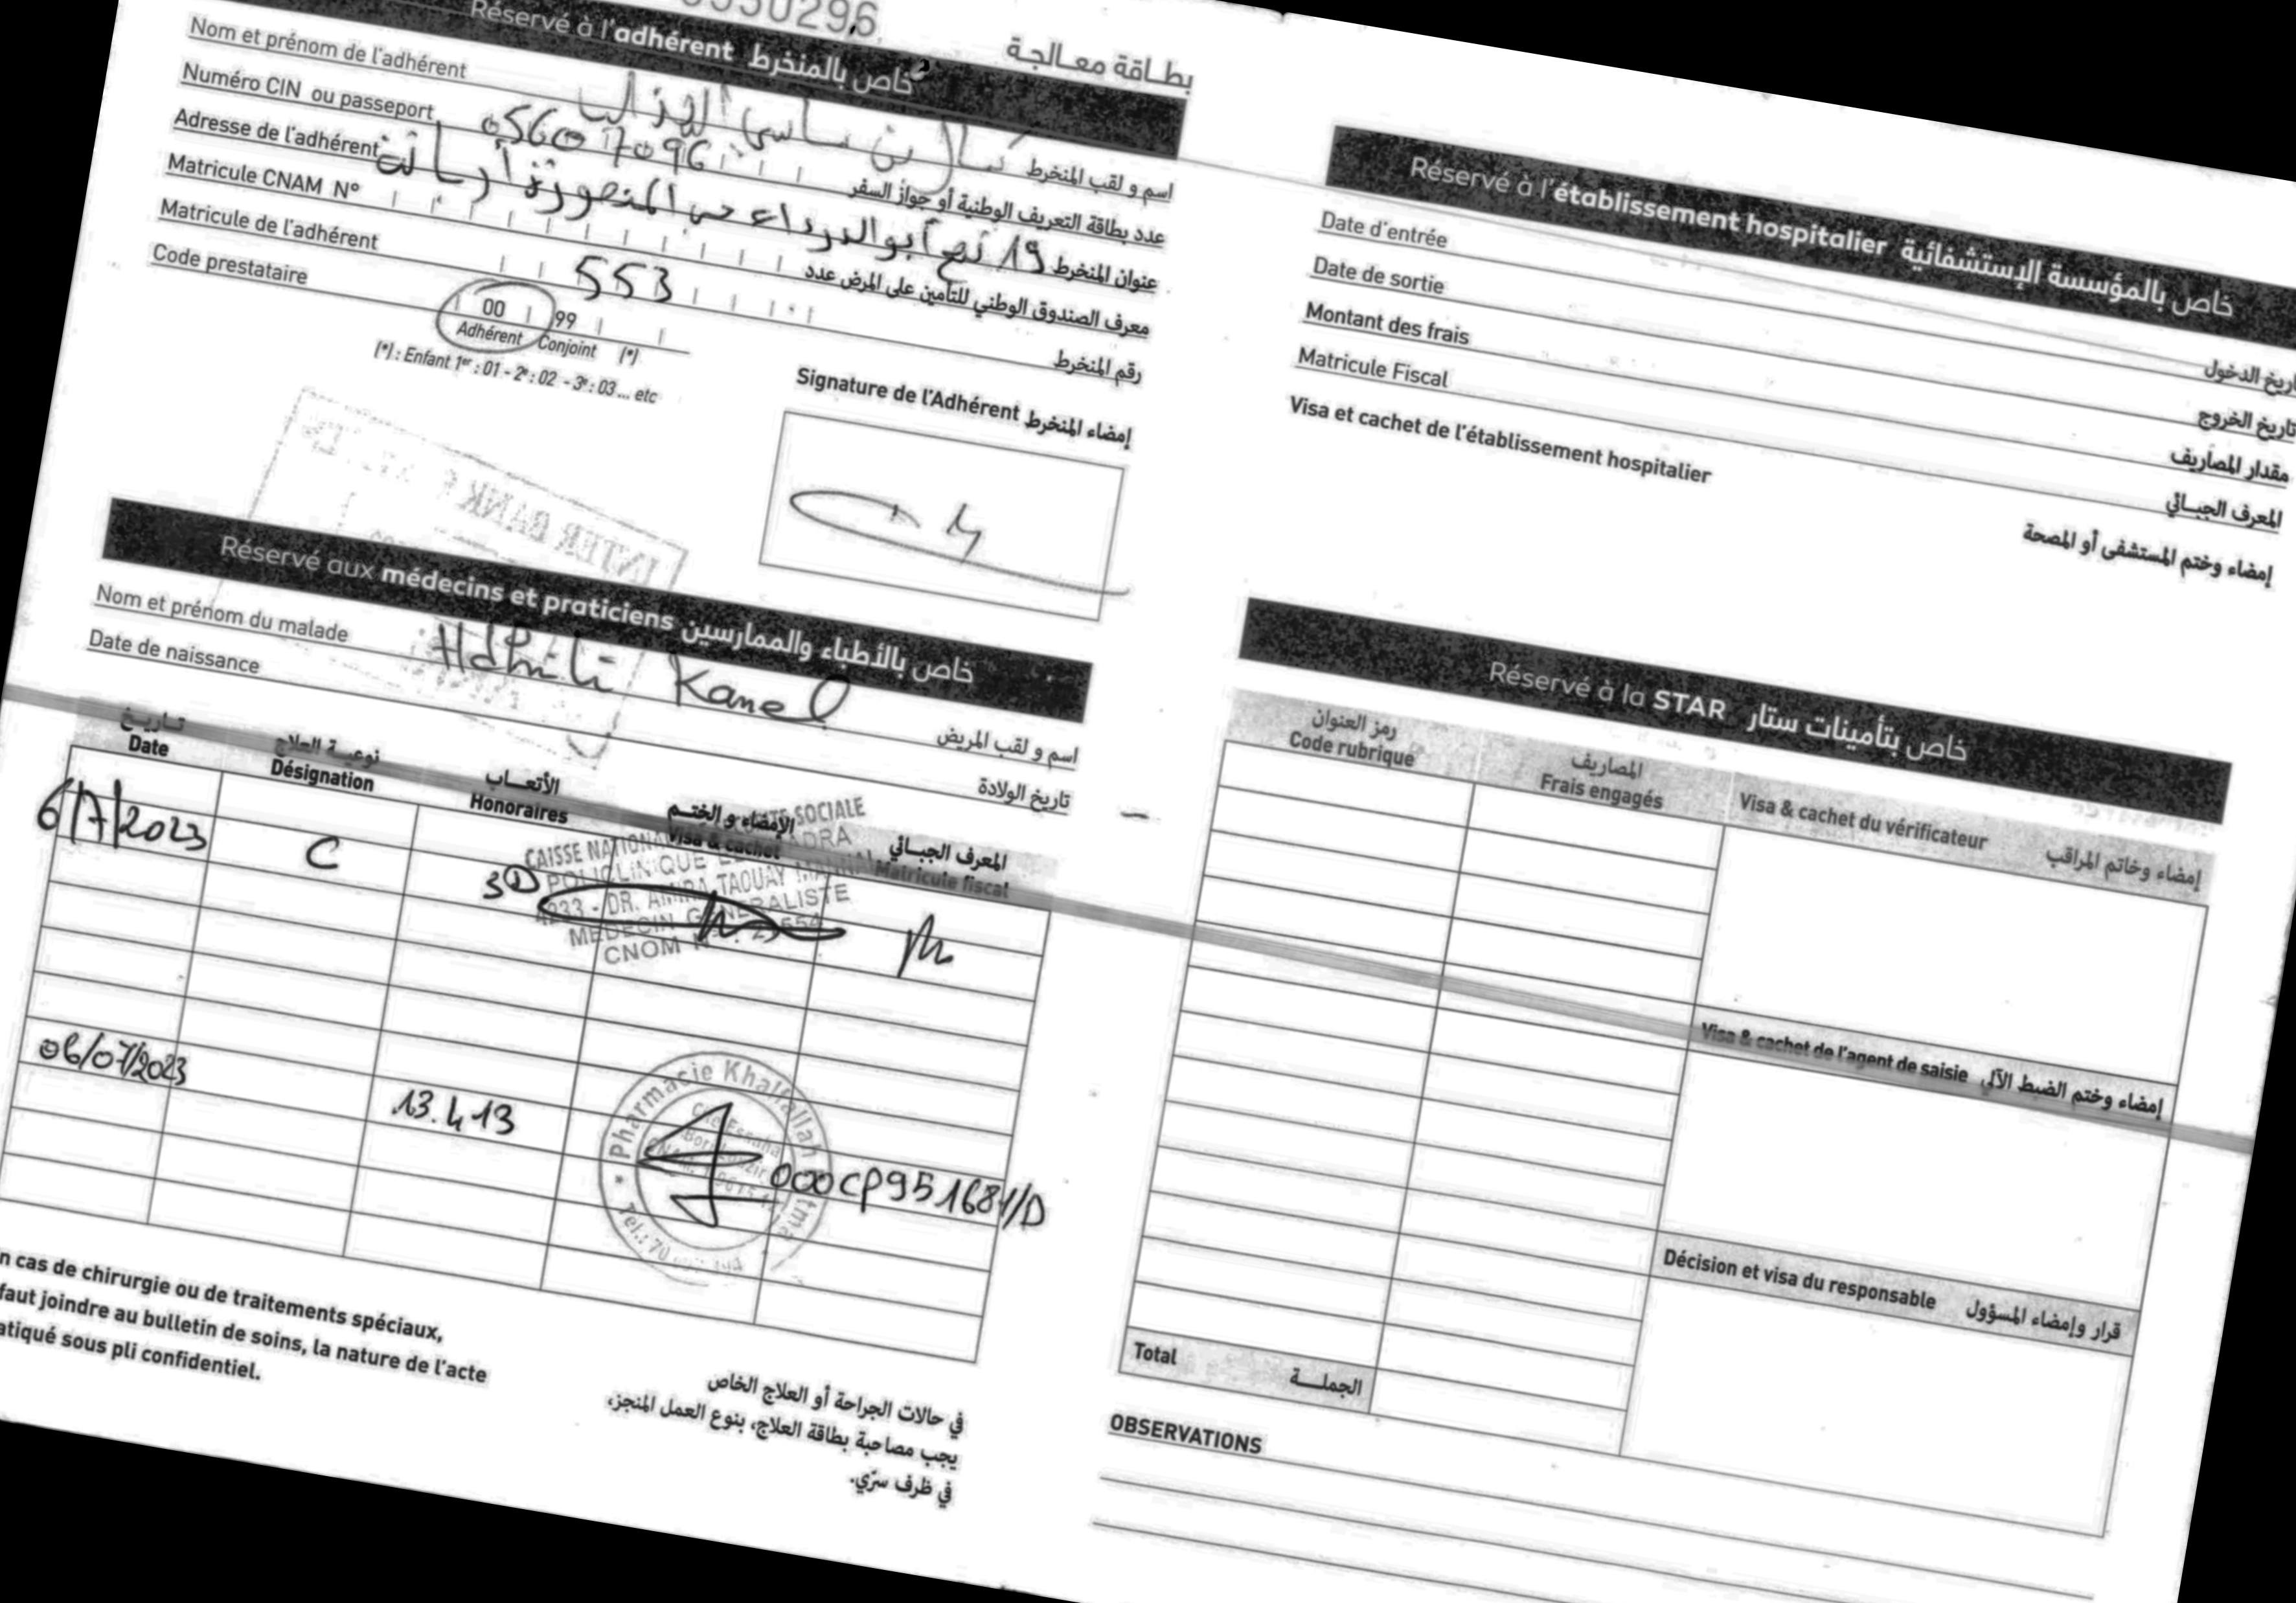 بطـاقة معـالجـة
Réservé à l'adhérent خاص بالمنخرط
Nom et prénom de l'adhérent اسم و لقب المنخرط
Numéro CIN ou passeport 05607096 عدد بطاقة التعريف الوطنية أو جواز السفر
Adresse de l'adhérent 19 نهج أبو الدرداء حي المنصورة أريانة عنوان المنخرط
Matricule CNAM N° معرف الصندوق الوطني للتأمين على المرض عدد
Matricule de l'adhérent 553 رقم المنخرط
Code prestataire 00 99
Adhérent Conjoint (*)
(*) : Enfant 1er : 01 - 2e : 02 - 3e : 03 ... etc
Signature de l'Adhérent إمضاء المنخرط
Réservé aux médecins et praticiens خاص بالأطباء والممارسين
Nom et prénom du malade Hdhili Kamel اسم و لقب المريض
Date de naissance تاريخ الولادة
تـاريـخ نوعيـة العلاج الأتعـاب الإمضاء و الختـم المعرف الجبـائي
Date Désignation Honoraires Visa & cachet Matricule fiscal
6/7/2023 C 3D
CAISSE NATIONALE SOCIALE
POLICLINIQUE
4233 - DR. AMIRA TAOUAY
MEDECIN GENERALISTE
CNOM
06/07/2023 13.413 000CP951684/D
Pharmacie Khalfallah
Cité Essaha
Tel.: 70
n cas de chirurgie ou de traitements spéciaux,
faut joindre au bulletin de soins, la nature de l'acte
atiqué sous pli confidentiel.
في حالات الجراحة أو العلاج الخاص
يجب مصاحبة بطاقة العلاج، بنوع العمل المنجز،
في ظرف سرّي.
Réservé à l'établissement hospitalier خاص بالمؤسسة الإستشفائية
Date d'entrée اريخ الدخول
Date de sortie تاريخ الخروج
Montant des frais مقدار المصاريف
Matricule Fiscal المعرف الجبـائي
Visa et cachet de l'établissement hospitalier إمضاء وختم المستشفى أو المصحة
Réservé à la STAR خاص بتأمينات ستار
رمز العنوان المصاريف
Code rubrique Frais engagés Visa & cachet du vérificateur إمضاء وخاتم المراقب
Visa & cachet de l'agent de saisie إمضاء وختم الضبط الآلي
Décision et visa du responsable قرار وإمضاء المسؤول
Total الجملـــة
OBSERVATIONS